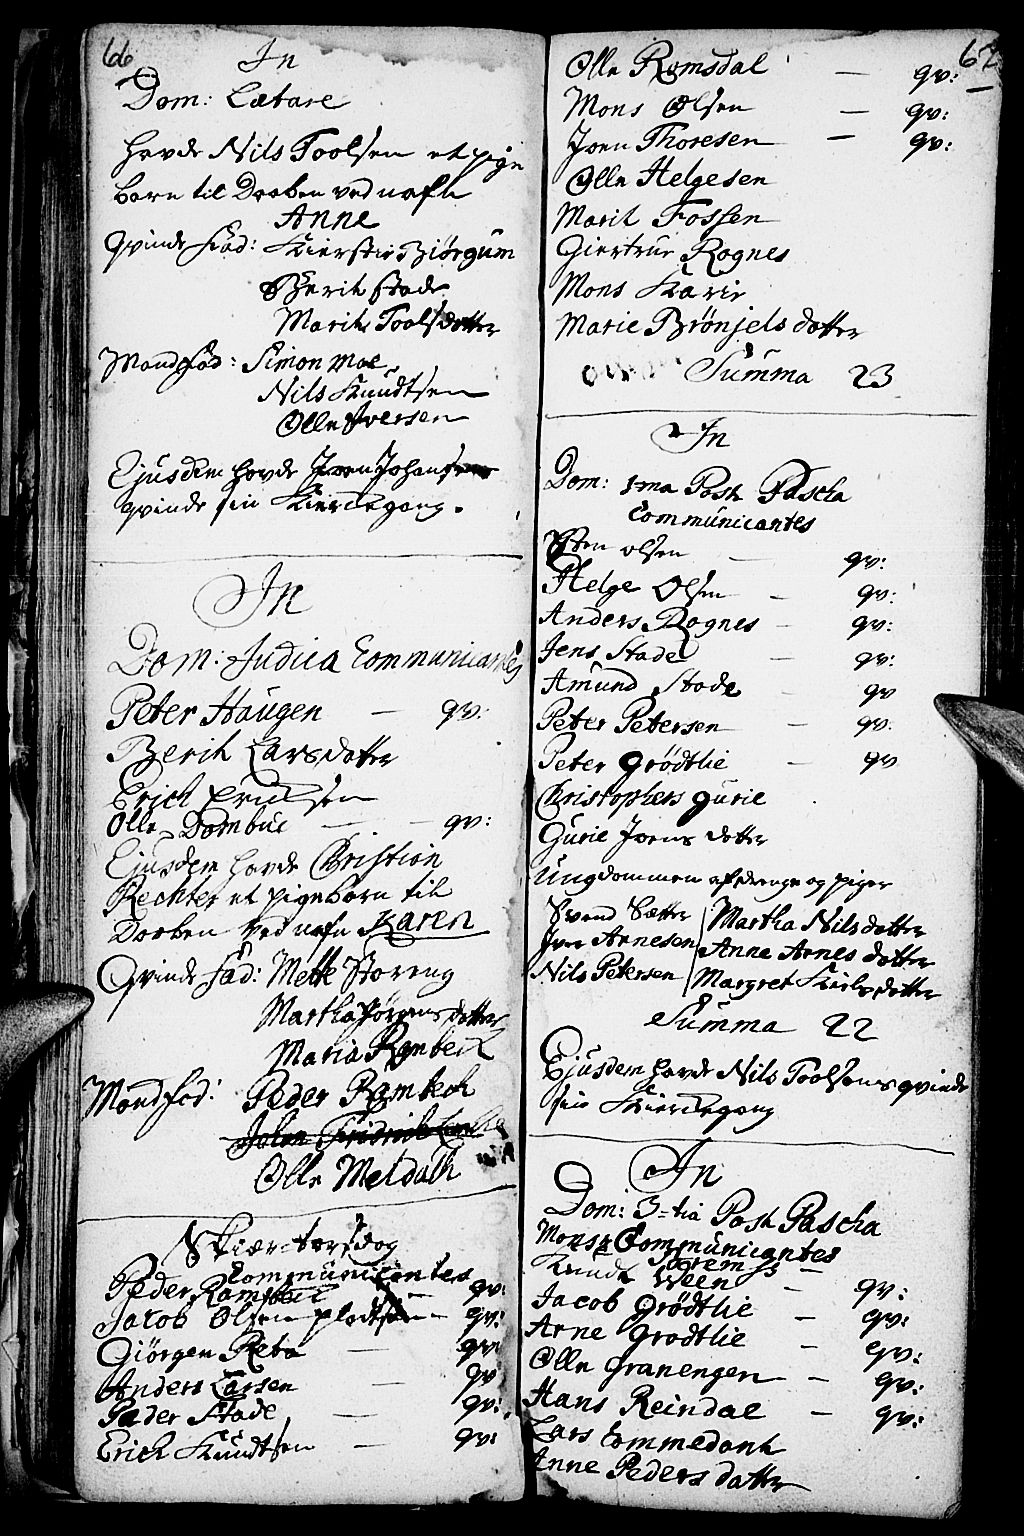 66
In
Dom: Lætare
hafde Nils Toolsen et pige
barn til Daaben ved nafn
Anne
Qvindfad: Kierstie Biørgum
Berit Stade
Marit Toolsdatter
Mandfad: Simon Moe
Nils Knudtsen
Olle Iversen
Ejusdem hafde Joen Johansens
qvinde sin Kierkegang.
In
Dom: Judica Communicantes
Peter Haugen — qv:
Berit Larsdatter
Erich Erichsen
Olle Dombue — — qv:
Ejusdem hafde Christian
Rechter et pigebarn til
Daaben ved nafn Karen
Qvindfad: Mette Storeng
Martha Jørgensdatter
Maria Rambech
Mandfad: Peder Rambech
Johan Fridrich
Olle Meldahl
Skiær-torsdag
Communicantes
Peder Rambech — qv:
Jacob Olsen — qv:
Giörgen Reta — qv:
Anders Larsen — qv
Peder Stade — qv:
Erich Knudtsen — qv:
67
Olle Romsdal — qv:
Mons Olsen — qv:
Joen Thoresen — qv:
Olle Helgesen
Marit Fossen
Giertrue Rognes
Mons Karie
Marie Brønjels datter
Summa 23
In
Dom: 1ma Post Pascha
Communicantes
Olsen — qv:
Helge Olsen — qv:
Anders Rognes — qv:
Jens Stade — qv:
Amund Stade — qv
Peter Petersen — qv:
Peter Grödtlie — qv
Christophers Gurie
Gurie Joens datter
Ungdommen af drenge og piger
Svend Sætter | Martha Nils datter
Iver Arnesen | Anne Arnes datter
Nils Petersen | Margret Kiels datter
Summa 22
Ejusdem hafde Nils Toolsens qvinde
sin Kierkegang
In
Dom: 3-tia Post Pascha
Communicantes
Knudt Ween — qv:
Jacob Grödtlie — qv:
Arne Grodtlie — qv:
Olle Granengen — qv:
Hans Reindal — qv:
Lars Commedant
Anne Peders datter